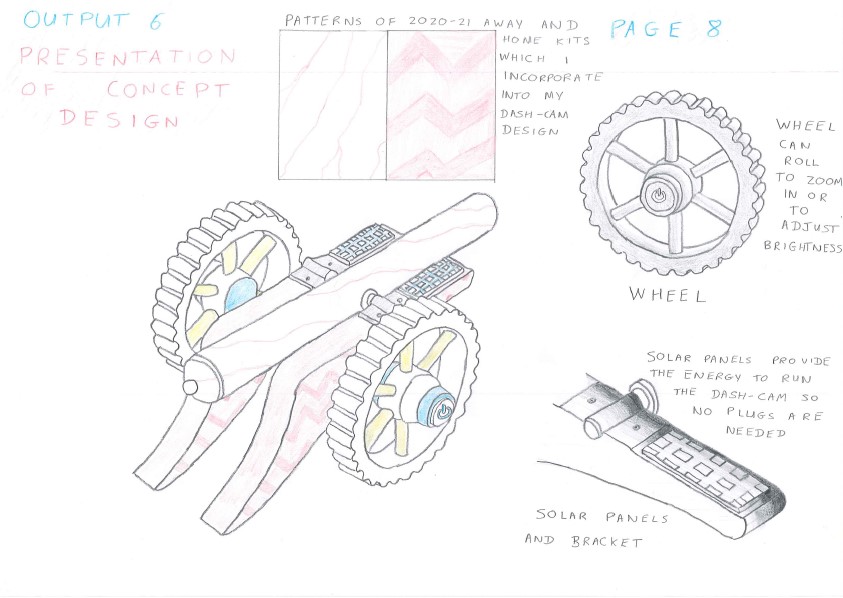 OUTPUT 6
PRESENTATION
OF CONCEPT
DESIGN
PATTERNS OF 2020-21 AWAY AND
HOME KITS
WHICH I
INCORPORATE
INTO MY
DASH-CAM
DESIGN
PAGE 8
WHEEL
CAN
ROLL
TO ZOOM
IN OR
TO
ADJUST
BRIGHTNESS
WHEEL
SOLAR PANELS PROVIDE
THE ENERGY TO RUN
THE DASH-CAM SO
NO PLUGS ARE
NEEDED
SOLAR PANELS
AND BRACKET